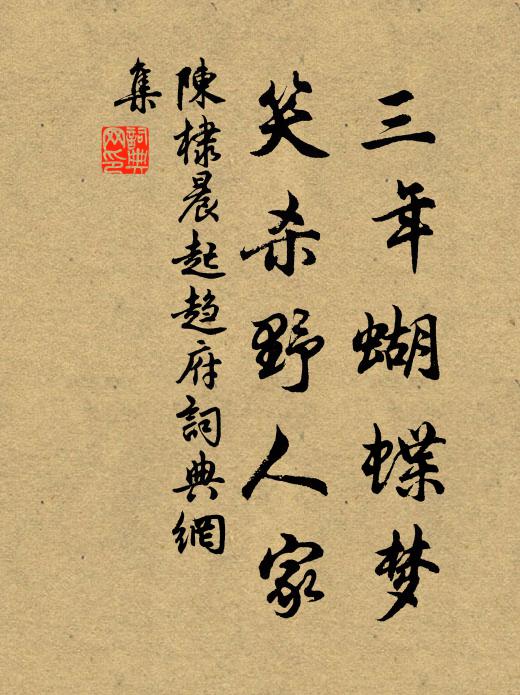 三年蝴蝶梦
笑杀野人家
陳棣晨起趨府詞典網
集
詞典網印